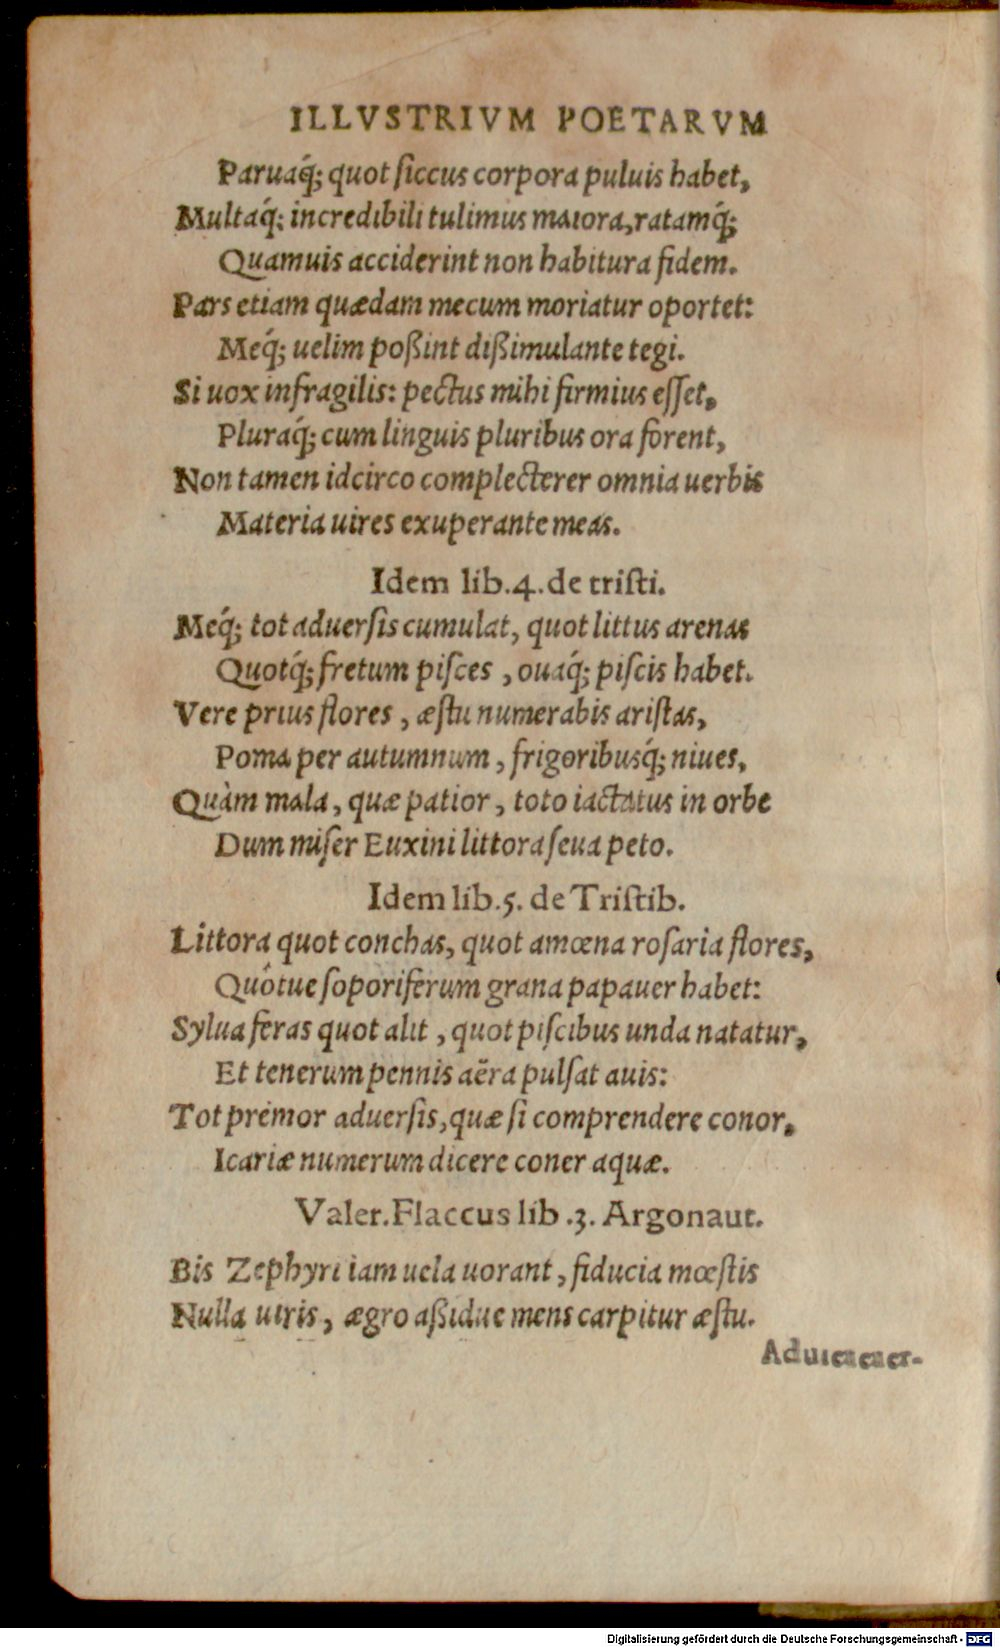 ILLVSTRIVM POETARVM
Paruaq́; quot ſiccus corpora puluis habet,
Multaq́; incredibili tulimus maiora, ratamq́;
Quamuis acciderint non habitura fidem.
Pars etiam quædam mecum moriatur oportet:
Meq́; uelim poßint dißimulante tegi.
Si uox infragilis: pectus mihi firmius eſſet,
Pluraq́; cum linguis pluribus ora forent,
Non tamen idcirco complecterer omnia uerbis
Materia uires exuperante meas.
Idem lib.4.de triſti.
Meq́; tot aduerſis cumulat, quot littus arenas
Quotq́; fretum piſces, ouaq́; piſcis habet.
Vere prius flores, æſtu numerabis ariſtas,
Poma per autumnum, frigoribusq́; niues,
Quàm mala, quæ patior, toto iactatus in orbe
Dum miſer Euxini littora ſeua peto.
Idem lib.5. de Triſtib.
Littora quot conchas, quot amœna roſaria flores,
Quótue ſoporiferum grana papauer habet:
Sylua feras quot alit, quot piſcibus unda natatur,
Et tenerum pennis aëra pulſat auis:
Tot premor aduerſis, quæ ſi comprendere conor,
Icariæ numerum dicere coner aquæ.
Valer.Flaccus lib.3. Argonaut.
Bis Zephyri iam uela uorant, fiducia mœſtis
Nulla uiris, ægro aßidue mens carpitur æſtu.
Digitalisierung gefördert durch die Deutsche Forschungsgemeinschaft - DFG